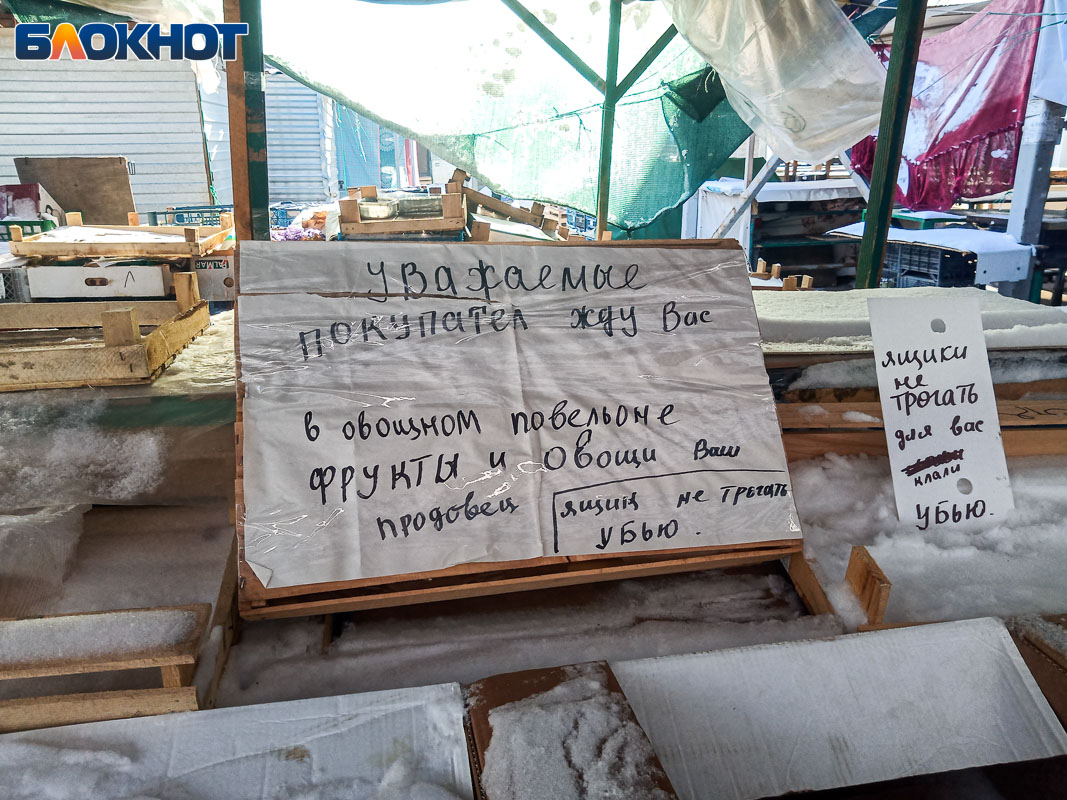 БЛОКНОТ
уважаемые
покупател жду Вас
в овощном повельоне
фрукты и Овощи Ваш
продовец
ящиц не трогать
убью.
ящики
не
трогать
для вас
клали
убью.
ALMAR